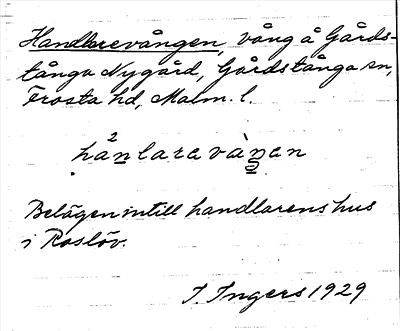 Handlarevången, vång å Gårds-
tånga Nygård, Gårdstånga sn,
Frosta hd, Malm. l.
hanlaravàŋan
Belägen intill handlarens hus
i Roslöv.
I. Ingers 1929